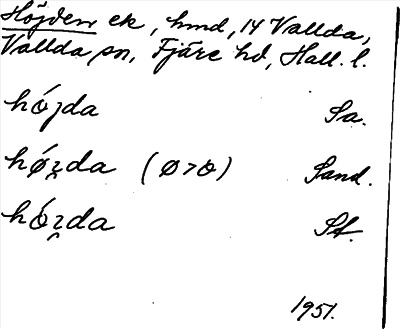 Höjden ek, hmd, 14 Vallda,
Vallda sn, Fjäre hd, Hall. l.
hójda Sa.
hǿʒda (ø>o) Sand.
hóʒda St.
1951.